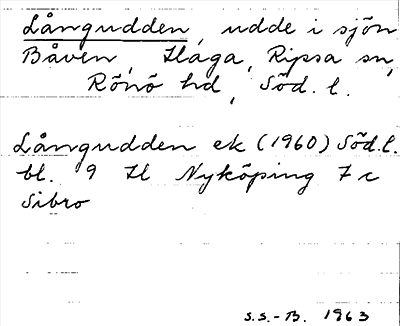 Långudden, udde i sjön
Båven, Haga, Ripsa sn,
Rönö hd, Söd. l.
Långudden ek (1960) Söd.l.
bl. 9 Il Nyköping 7 c
Sibro
S.S.-B. 1963